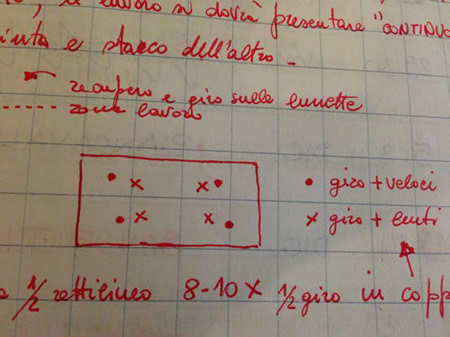 il lavoro si dovrà presentare "CONTINUO
e stacco dell'altro -
recupero e giro sulle lunette
------- zona lavoro
• giro + veloci
x giro + lenti
1/2 rettilineo 8-10 x 1/2 giro in copp